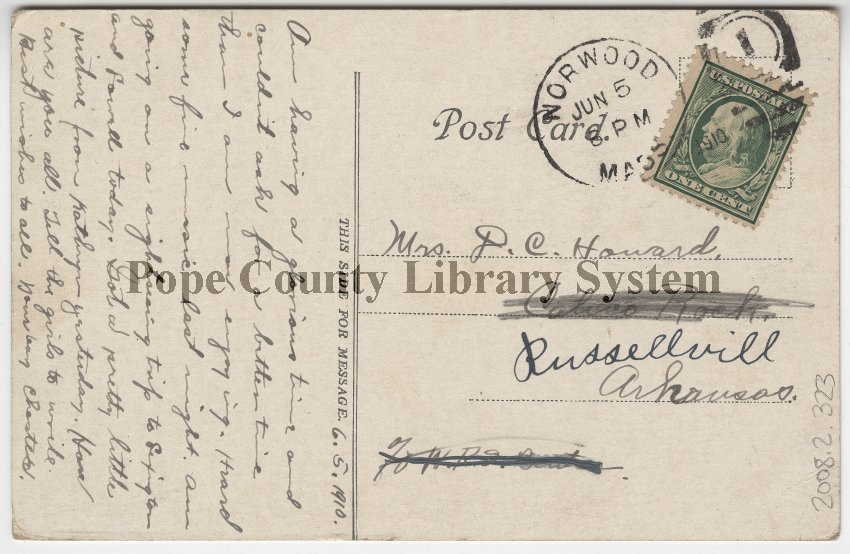 Am having a glorious time and
couldn't ask for a better time
than I am now enjoying. Heard
some fine music last night. Am
going on a sightseeing trip to
and today. Got a pretty little
picture from Kathryn yesterday. How
are you all. Tell the girls to write.
Best wishes to all. Your boy Charles.
THIS SIDE FOR MESSAGE. 6.5.1910.
Post Card.
NORWOOD
JUN 5
8 PM
MASS
1
1910
U.S. POSTAGE
ONE CENT
Mrs. P. C. Howard,
Pope County Library System
Rock,
Russellvill
Arkansas.
2008.2.323